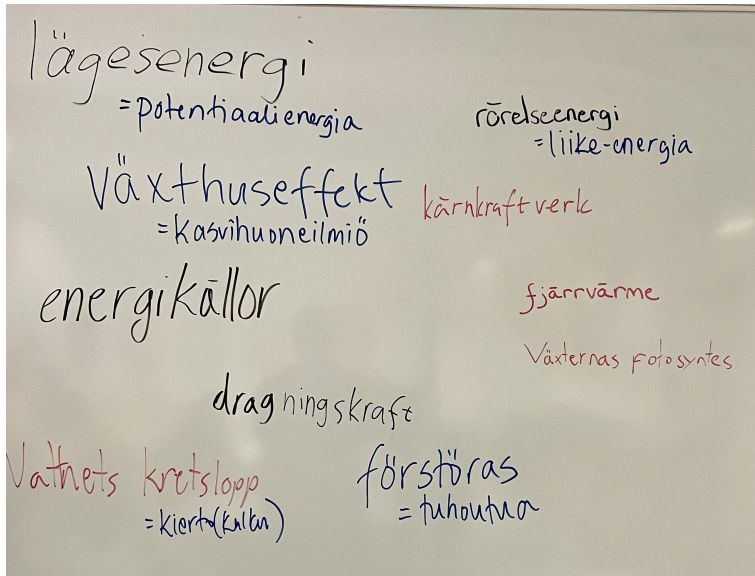 lägesenergi
= potentiaalienergia
rörelseenergi
= liike-energia
växthuseffekt
= kasvihuoneilmiö
kärnkraftverk
energikällor
fjärrvärme
Växternas fotosyntes
dragningskraft
Vattnets kretslopp
= kierto(kulku)
förstöras
= tuhoutua